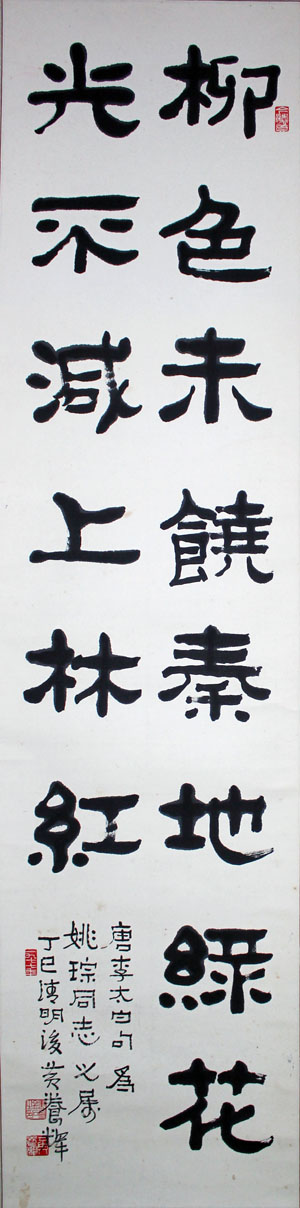 柳色未饒秦地綠花
光不減上林紅
唐李太白句爲
姚琮同志之屬
丁巳清明後黃養輝